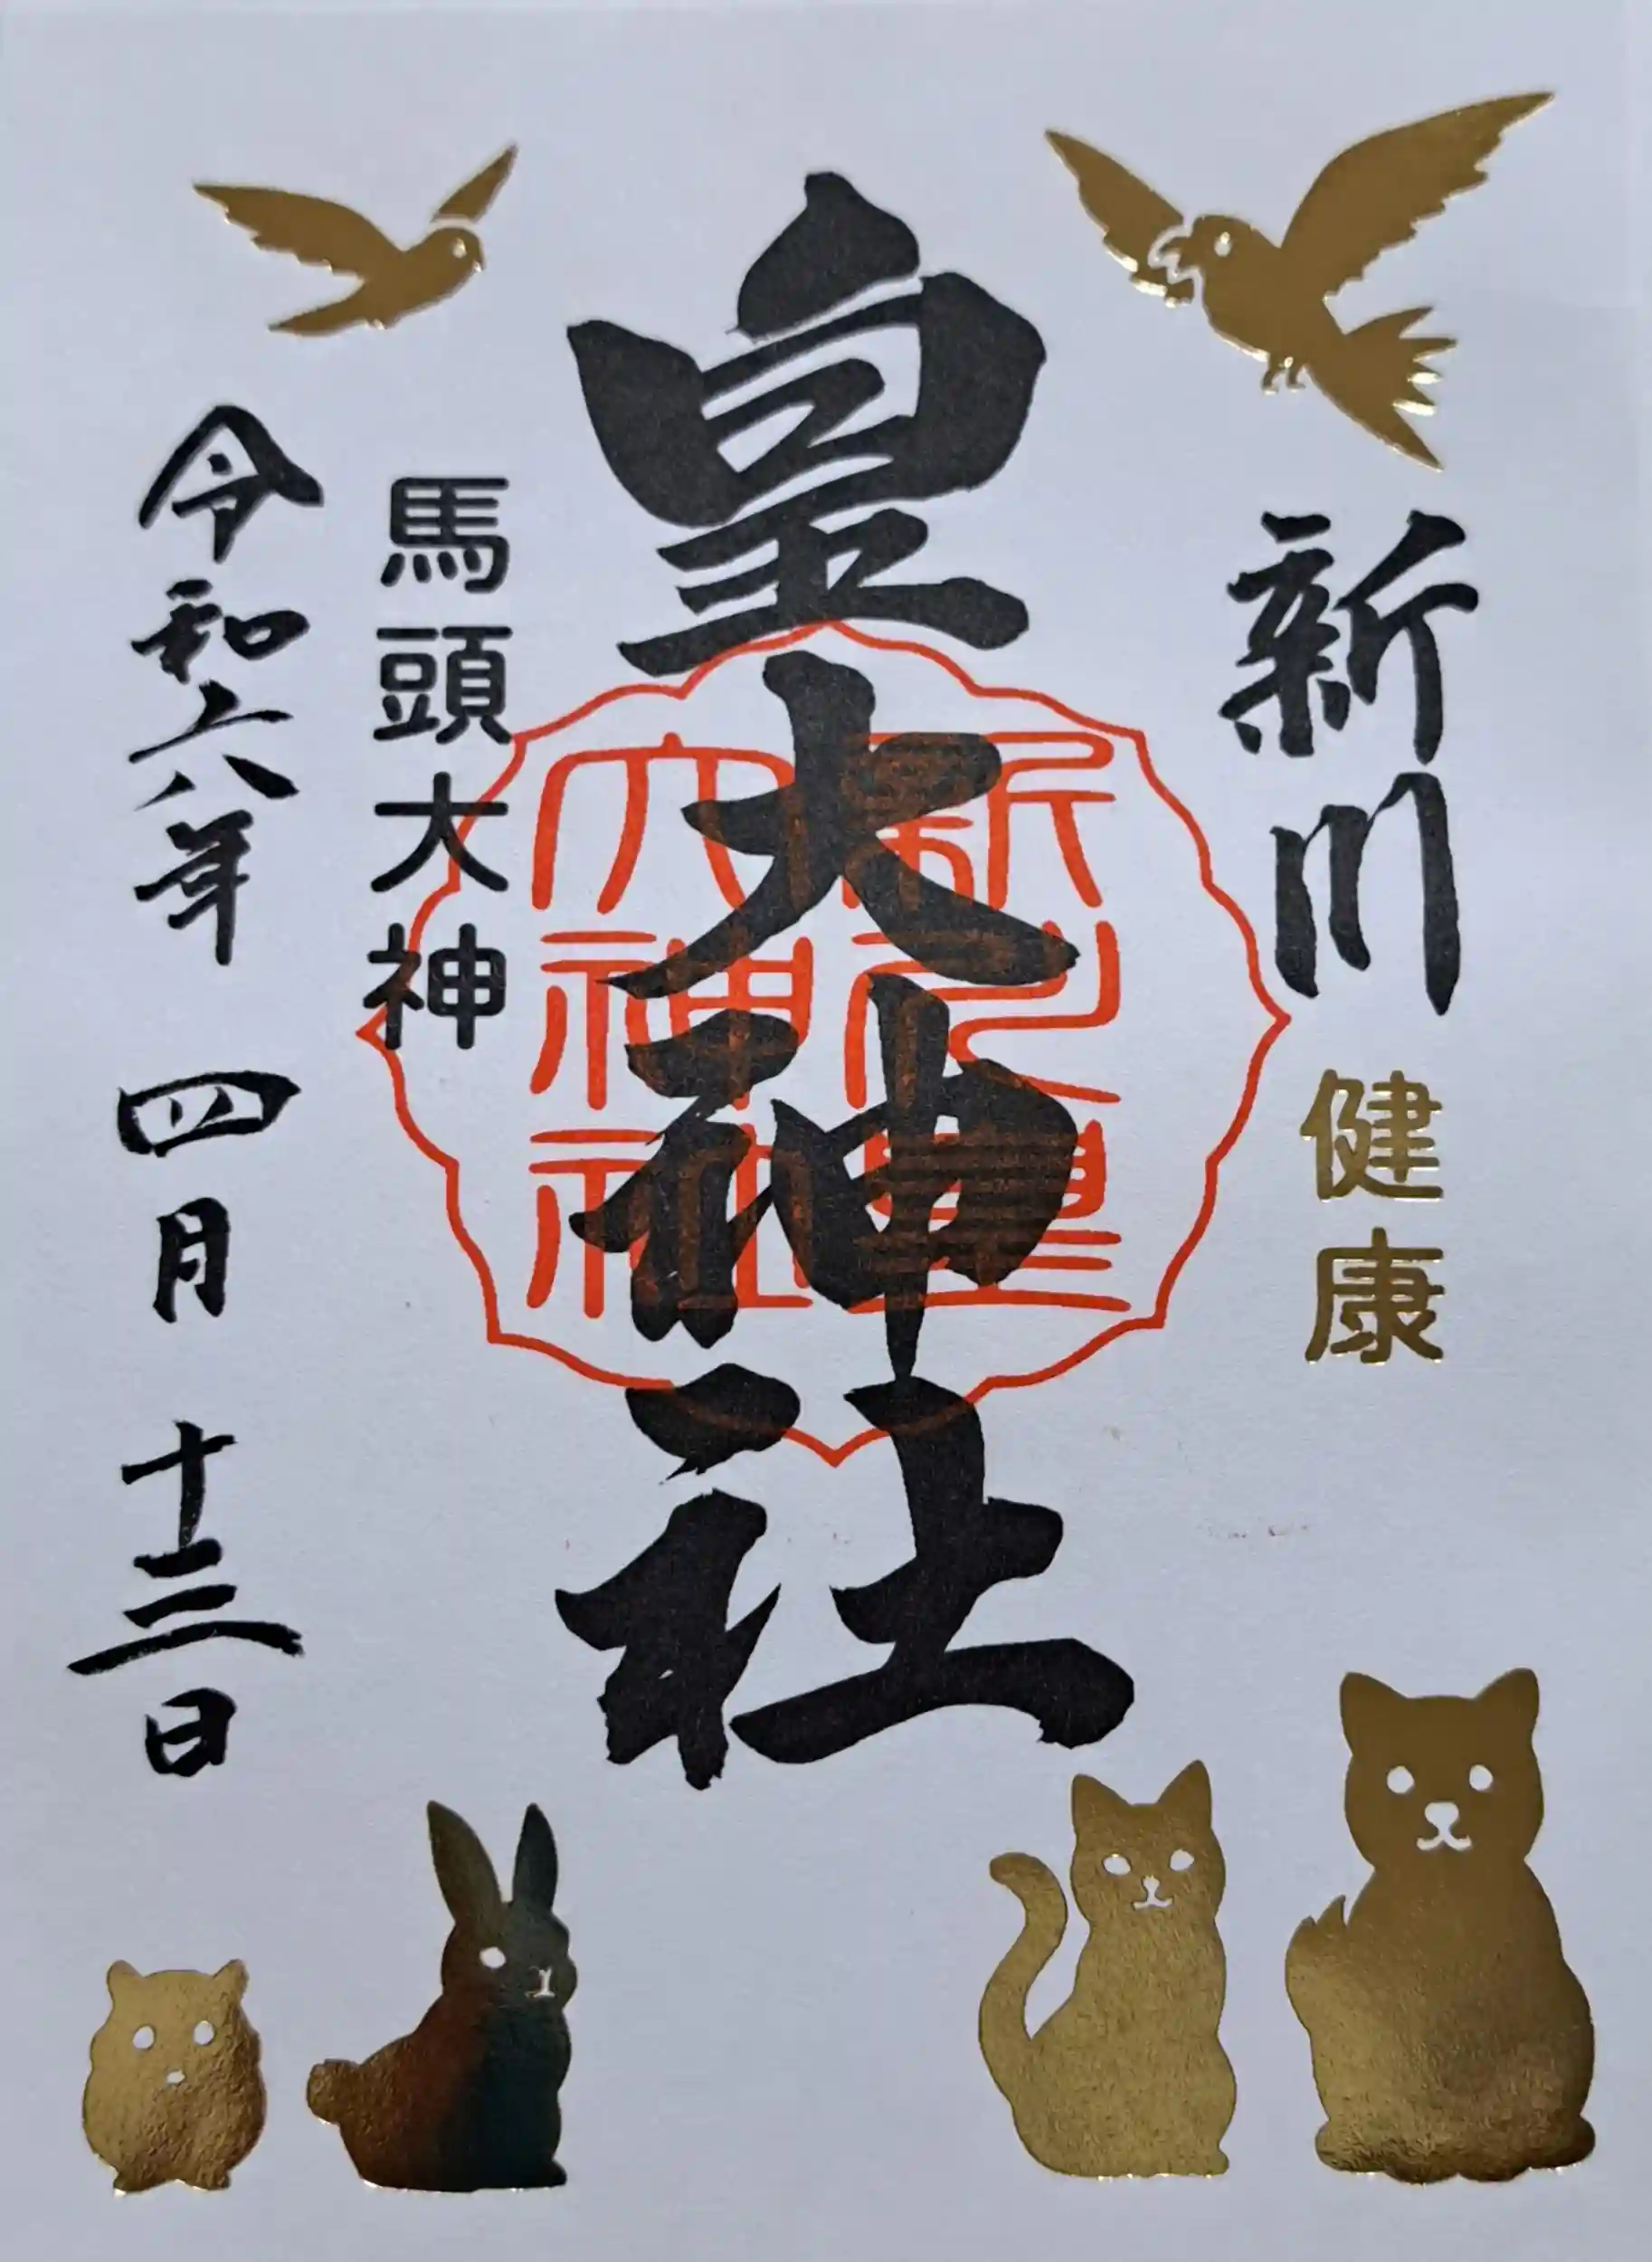 新川
健康
皇大神社
新川皇
大神社
馬頭大神
令和六年 四月 十三日